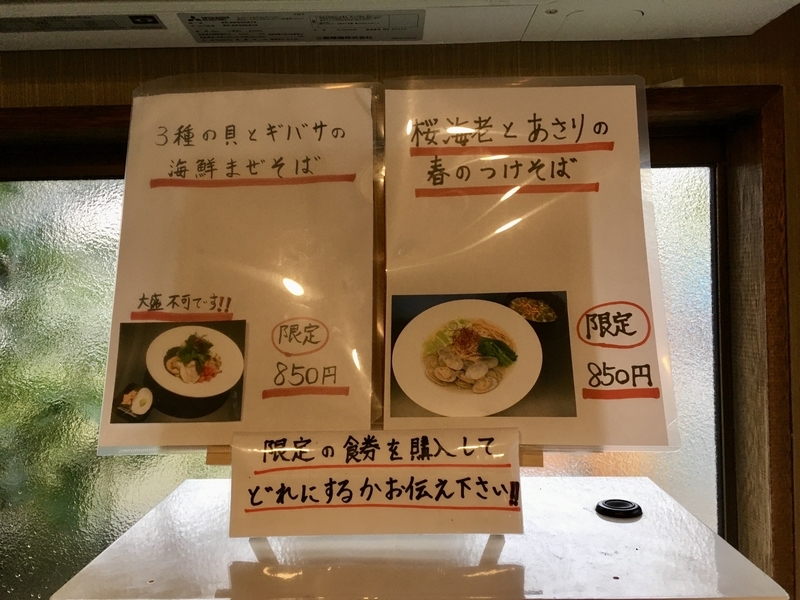 3種の貝とギバサの
海鮮まぜそば
大盛不可で-す!!
限定
850円
桜海老とあさりの
春のつけそば
限定
850円
限定の食券を購入して
どれにするかお伝え下さい!!